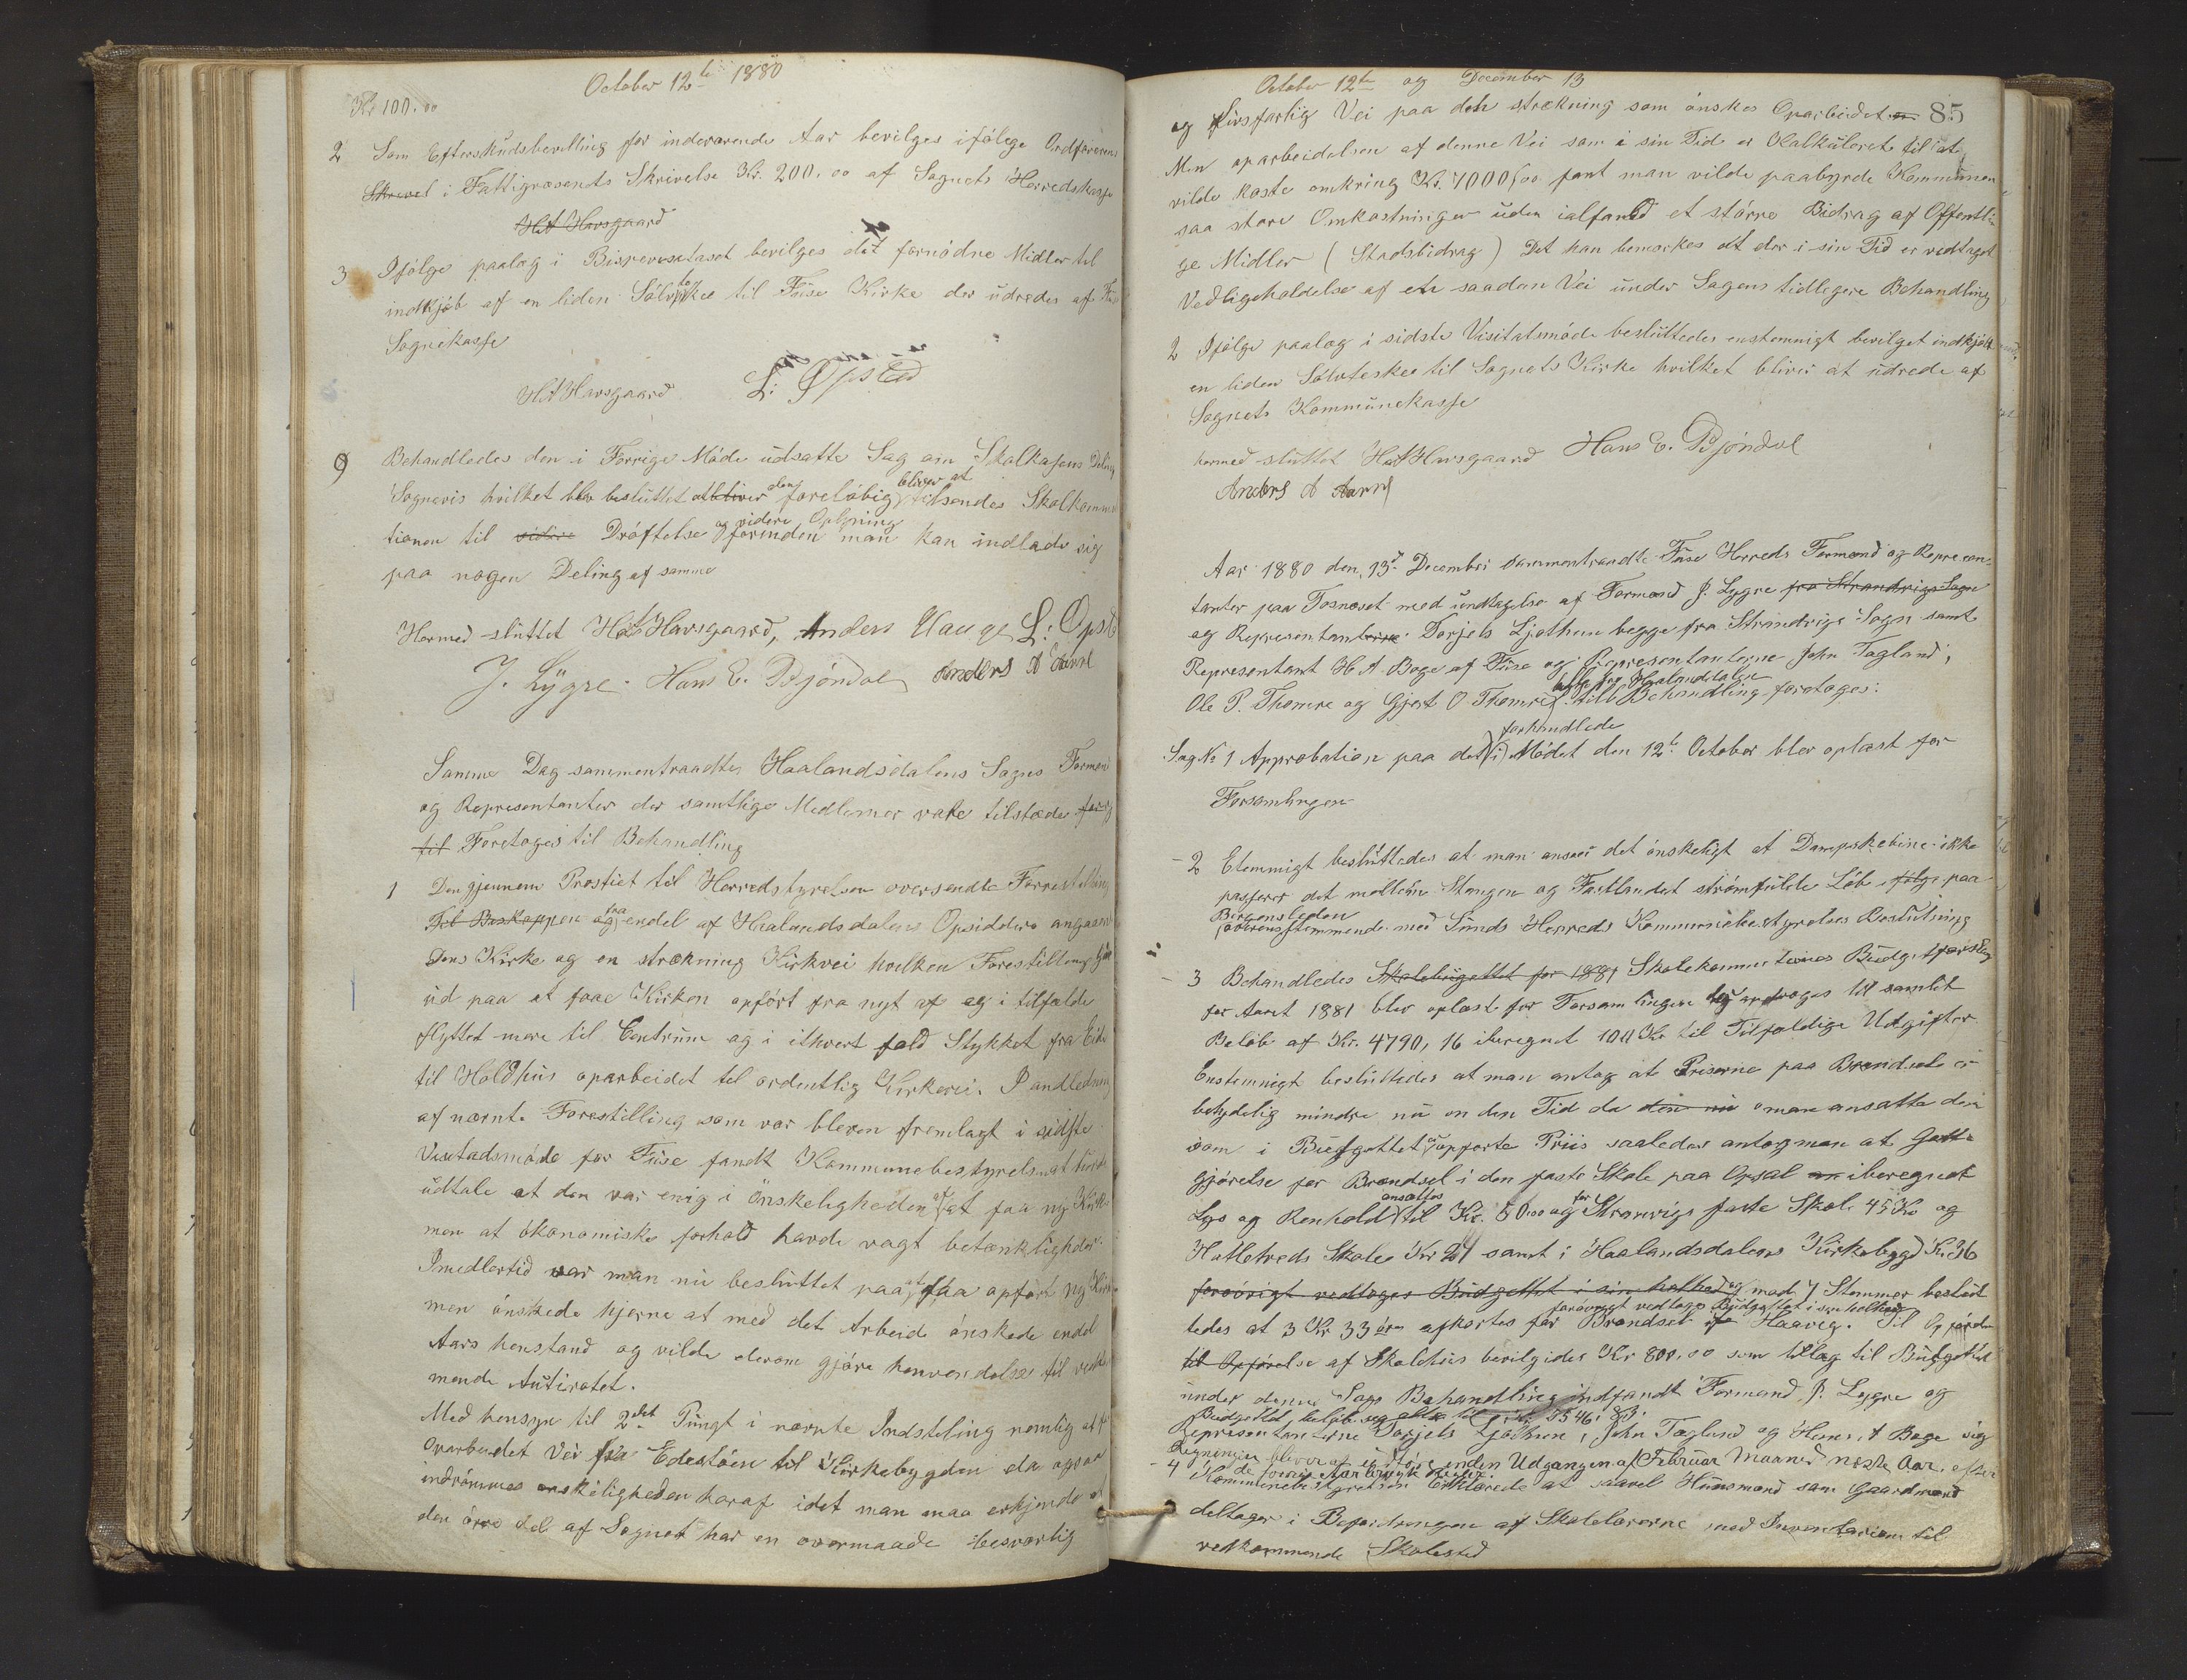 October 12te 1880
Kr 100.00
2 Som Efterskudsbevilling for indeværende Aar bevilges ifølge Ordførerens
Skrevel i Fattigvæsents Skrivelse Kr. 200.00 af Sognets Herredskasse
H A Havsgaard
3 Ifølge paalæg i Bispevesitatset bevilges det fornødne Midler til
indkjøb af en liden Sølvskee til Fuse Kirke der udredes af Fuse
Sognekasse
H A Havsgaard L: Opsted
9 Behandledes den i Forrige Møde udsatte Sag om Skolkasens Deling
Sognevis hvilket blev besluttet at bliver den foreløbig bliver at tilsendes Skolkommi
tionen til vidre Drøftelse og videre Oplysning forinden man kan indlade sig
paa nogen Deling af samme
Hermed sluttet H A Havsgaard, Anders Hauge L: Opsted
J. Lygre. Hans E. Bjöndal Anders A
Samme Dag sammentraadte Haalandsdalens Sogns Formænd
og Representanter der samtlige Medlemer vare tilstæde for
til Foretages til Behandling
1 Den gjennem Prostiet til Herredstyrelsen oversendte Forrestilling
Fol Beskappen og fra endel af Haalandsdalens Opsiddere angaaende
Dens Kirke og en strækning Kirkvei hvilken Forestilling gaar
ud paa at faae Kirken opført fra nyt af og i tilfælde
flyttet mere til Centrum og i ithvert fald Stykket fra Eide
til Holdhus oparbeidet til ordentlig Kirkevei. I andledning
af nævnte Forestilling som var bleven fremlagt i sidste
Visitadsmøde for Fuse fandt Kommunebestyrelsen at burde
udtale at den var enig i Ønskeligheden af at faa ny Kirke
men at økonomiske forhold havde vagt betænkligheder.
Imedlertid var man nu besluttet paa at faa opført ny Kirke
men ønskede hjerne at med det Arbeide ønskede endel
Aars henstand og vilde derom gjøre henvendelse til vedko
mende Autiratet.
Med hensyn til 2det Pungt i nævnte Indstilling nemlig at faa
oparbeidet Vei fra Edestöen til Kirkebygden da ogsaa
indrømmes ønskeligheden heraf idet man maa erkjende at
den övre del af Sognet har en overmaade besværlig
October 12te og December 13
85
og livsfarlig Vei paa den strækning som ønskes Oparbeidet
Men oparbeidelsen af denne Vei som i sin Tid er Kalkuleret til at
vilde koste omkring Kr. 7000,00 fant man vilde paabyrde Kommunen
saa store Omkostninger uden ialfald et større Bidrag af Offentli
ge Midler (Stadsbidrag) Det kan bemærkes at der i sin Tid er vedtaget
Vedligeholdelse af en saadan Vei under Sagens tidlegere Behandling
2 Ifølge paalæg i sidste Visitatsmøde besluttedes enstemmigt bevilget indkjøbt
en liden Sølvteskee til Sognets Kirke hvilket bliver at udrede af
Sognets Kommunekasse
hermed sluttet H A Havsgaard Hans E. Bjöndal
Anders A
Aar 1880 den 13de December sammentraadte Fuse Herreds Formænd og Represen
tanter paa Tosneset med undtagelse af Formand J. Lygre fra Strandvigs Sogn
og Representanterne Torjels Ljothun begge fra Strandvigs Sogn samt
Representant H A. Boge af Fuse og Representanterne John Tagland,
Ole P. Thomre og Gjest O Thomre begge fra Haalandsdalen till Behandling foretages:
Sag No 1 Approbation paa det i forhandlede Mødet den 12te October blev oplæst for
Forsamlingen
- 2 Etemmigt besluttedes at man anser det ønskeligt at Dampskebine ikke
passerer det mellem Stangen og Fastlandet strømfulde Løb ifølge paa
Bergensleden
overensstemmende med Sunds Herreds Kommunebestyrelses Beslutning
- 3 Behandledes Skolebugettet for 1881 Skolekommitionens Budgetforslag
for Aaret 1881 blev oplæst for Forsamlingen der androges til samlet
Beløb af Kr. 4790,16 iberegnet 100 Kr til Tilfældige Udgifter
Enstemnigt besluttedes at man antog at Priserne paa Brændsele er
betydelig mindre nu en den Tid da den nu man ansatte den
som i Budgettet er opførte Priis saaledes antog man at Godt
gjørelse for Brændsel i den faste Skole paa Opsal iberegnet
Lys og Renhold ansættes til Kr. 50.00 og for Stranvigs faste Skole 45 Kr og
Hatletreds Skole Kr 21 samt i Haalandsdalens Kirkebygd Kr. 36
forøvrigt vedtoges Budgettet i sin helhed og med 7 Stemmer beslut
tedes at 3 Kr 33 øre afkortes for Brændsel i Haaveg. forøvrigt vedtoges Budgettet i sin helhed Til
til Opførelse af Skolehus bevilgides Kr 800,00 som tillæg til Budgettet
under denne Sags Behandling indfandt Formand J. Lygre og
Budgettet beløber seg altsaa til Kr. 5546.83.
Representanterne Torjels Ljothun, John Tagland og Hans A Boge sig
Regningen bliver af inden Udgangen af Februar Maaned næste Aar. efter
de forrige Aar brugte Regler.
- 4 Kommunebestyrelsen Erklærede at saavel Husmænd som Gaardmænd
deltager i Befordringen af Skolelærerne med Inventarium til
vedkommende Skolested